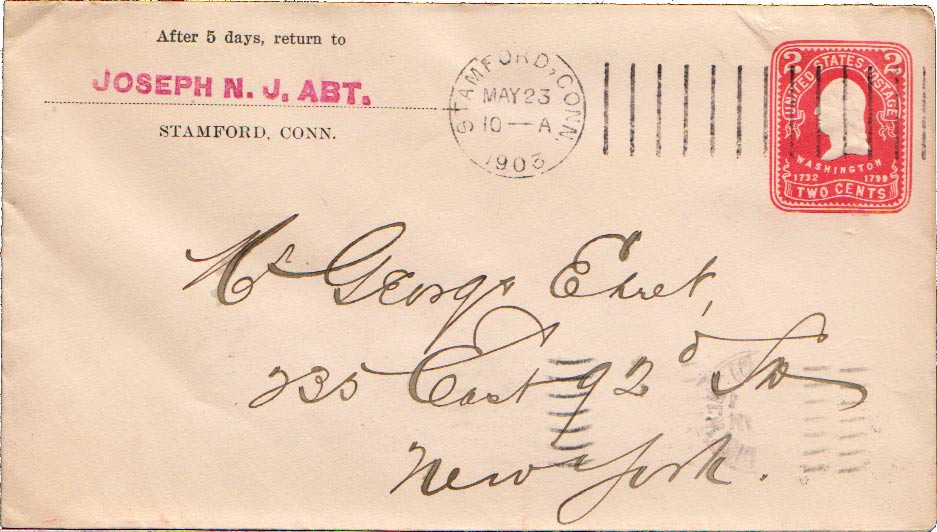 After 5 days, return to
JOSEPH N. J. ABT.
STAMFORD, CONN.
STAMFORD, CONN.
MAY 23
10 — A
1903
2 2
UNITED STATES POSTAGE
WASHINGTON
1732 1799
TWO CENTS
Mr George Ehret,
235 East 92d St
New York.